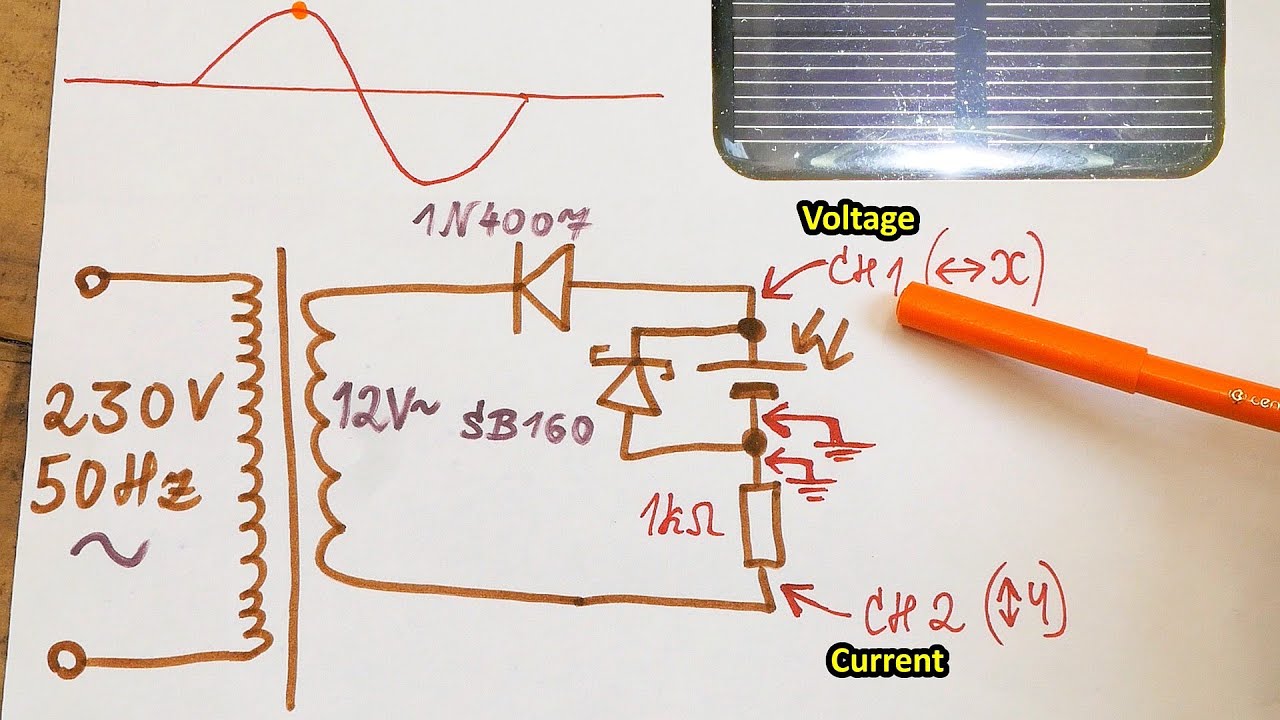 1N4007
Voltage
CH1 (↔X)
230V
50Hz
~
12V~
SB160
1kΩ
CH2 (↕Y)
Current
cen